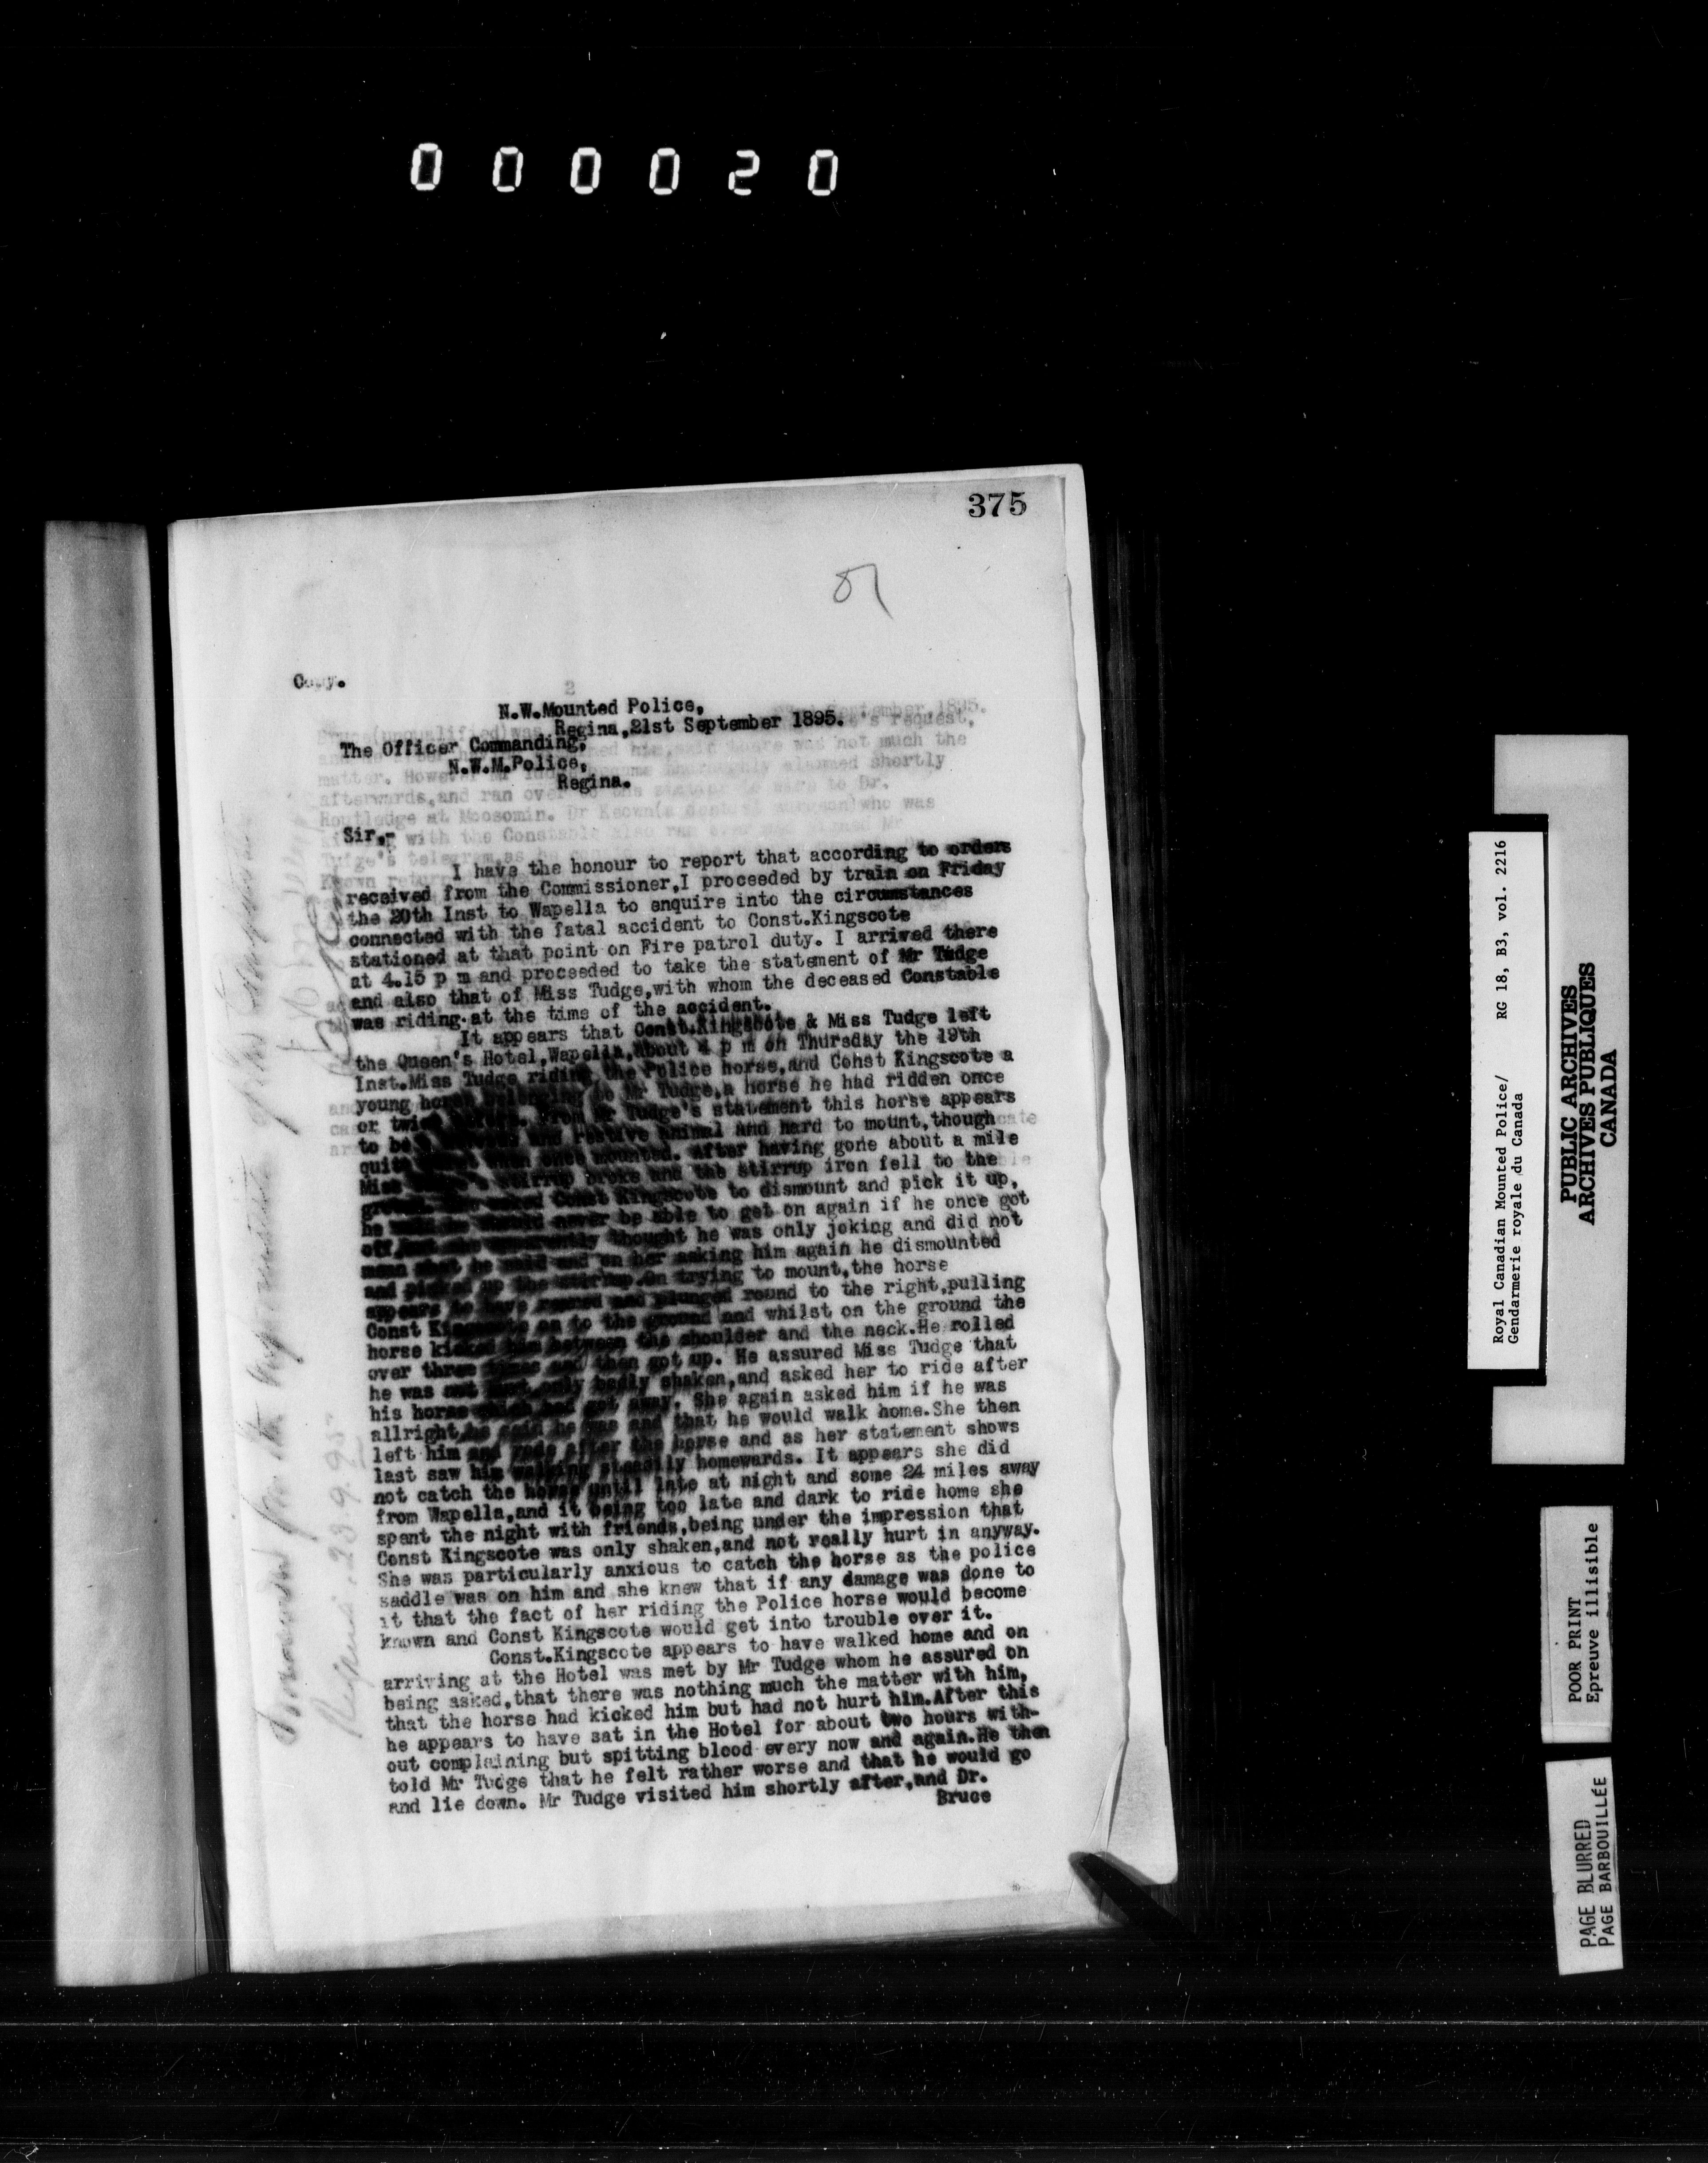 000020
375
Copy.
N.W.Mounted Police,
Regina,21st September 1895.
The Officer Commanding,
N.W.M.Police,
Regina.
Sir,-
I have the honour to report that according to orders
received from the Commissioner,I proceeded by train on Friday
the 20th Inst to Wapella to enquire into the circumstances
connected with the fatal accident to Const.Kingscote
stationed at that point on Fire patrol duty. I arrived there
at 4.15 p m and proceeded to take the statement of Mr Tudge
and also that of Miss Tudge,with whom the deceased Constable
was riding at the time of the accident.
It appears that Const.Kingscote & Miss Tudge left
the Queen's Hotel,Wapella,about 4 p m on Thursday the 19th
Inst.Miss Tudge riding the Police horse,and Const Kingscote a
young horse belonging to Mr Tudge,a horse he had ridden once
or twice before. From Mr Tudge's statement this horse appears
to be a and restive animal and hard to mount,though
quite when once mounted. After having gone about a mile
Miss Tudge's stirrup broke and the stirrup iron fell to the
ground. She asked Const Kingscote to dismount and pick it up,
he said he should never be able to get on again if he once got
off,but she apparently thought he was only joking and did not
mean what he said and on her asking him again he dismounted
and picked up the stirrup.On trying to mount,the horse
appears to have reared and plunged round to the right,pulling
Const Kingscote on to the ground and whilst on the ground the
horse kicked him between the shoulder and the neck.He rolled
over three times and then got up. He assured Miss Tudge that
he was not hurt only badly shaken,and asked her to ride after
his horse which had got away. She again asked him if he was
allright,he said he was and that he would walk home.She then
left him and rode after the horse and as her statement shows
last saw him walking steadily homewards. It appears she did
not catch the horse until late at night and some 24 miles away
from Wapella,and it being too late and dark to ride home she
spent the night with friends,being under the impression that
Const Kingscote was only shaken,and not really hurt in anyway.
She was particularly anxious to catch the horse as the police
saddle was on him and she knew that if any damage was done to
it that the fact of her riding the Police horse would become
known and Const Kingscote would get into trouble over it.
Const.Kingscote appears to have walked home and on
arriving at the Hotel was met by Mr Tudge whom he assured on
being asked,that there was nothing much the matter with him,
that the horse had kicked him but had not hurt him.After this
he appears to have sat in the Hotel for about two hours with-
out complaining but spitting blood every now and again.He then
told Mr Tudge that he felt rather worse and that he would go
and lie down. Mr Tudge visited him shortly after,and Dr.
Bruce
Royal Canadian Mounted Police/ RG 18, B3, vol. 2216
Gendarmerie royale du Canada
PUBLIC ARCHIVES
ARCHIVES PUBLIQUES
CANADA
POOR PRINT
Epreuve illisible
PAGE BLURRED
PAGE BARBOUILLÉE